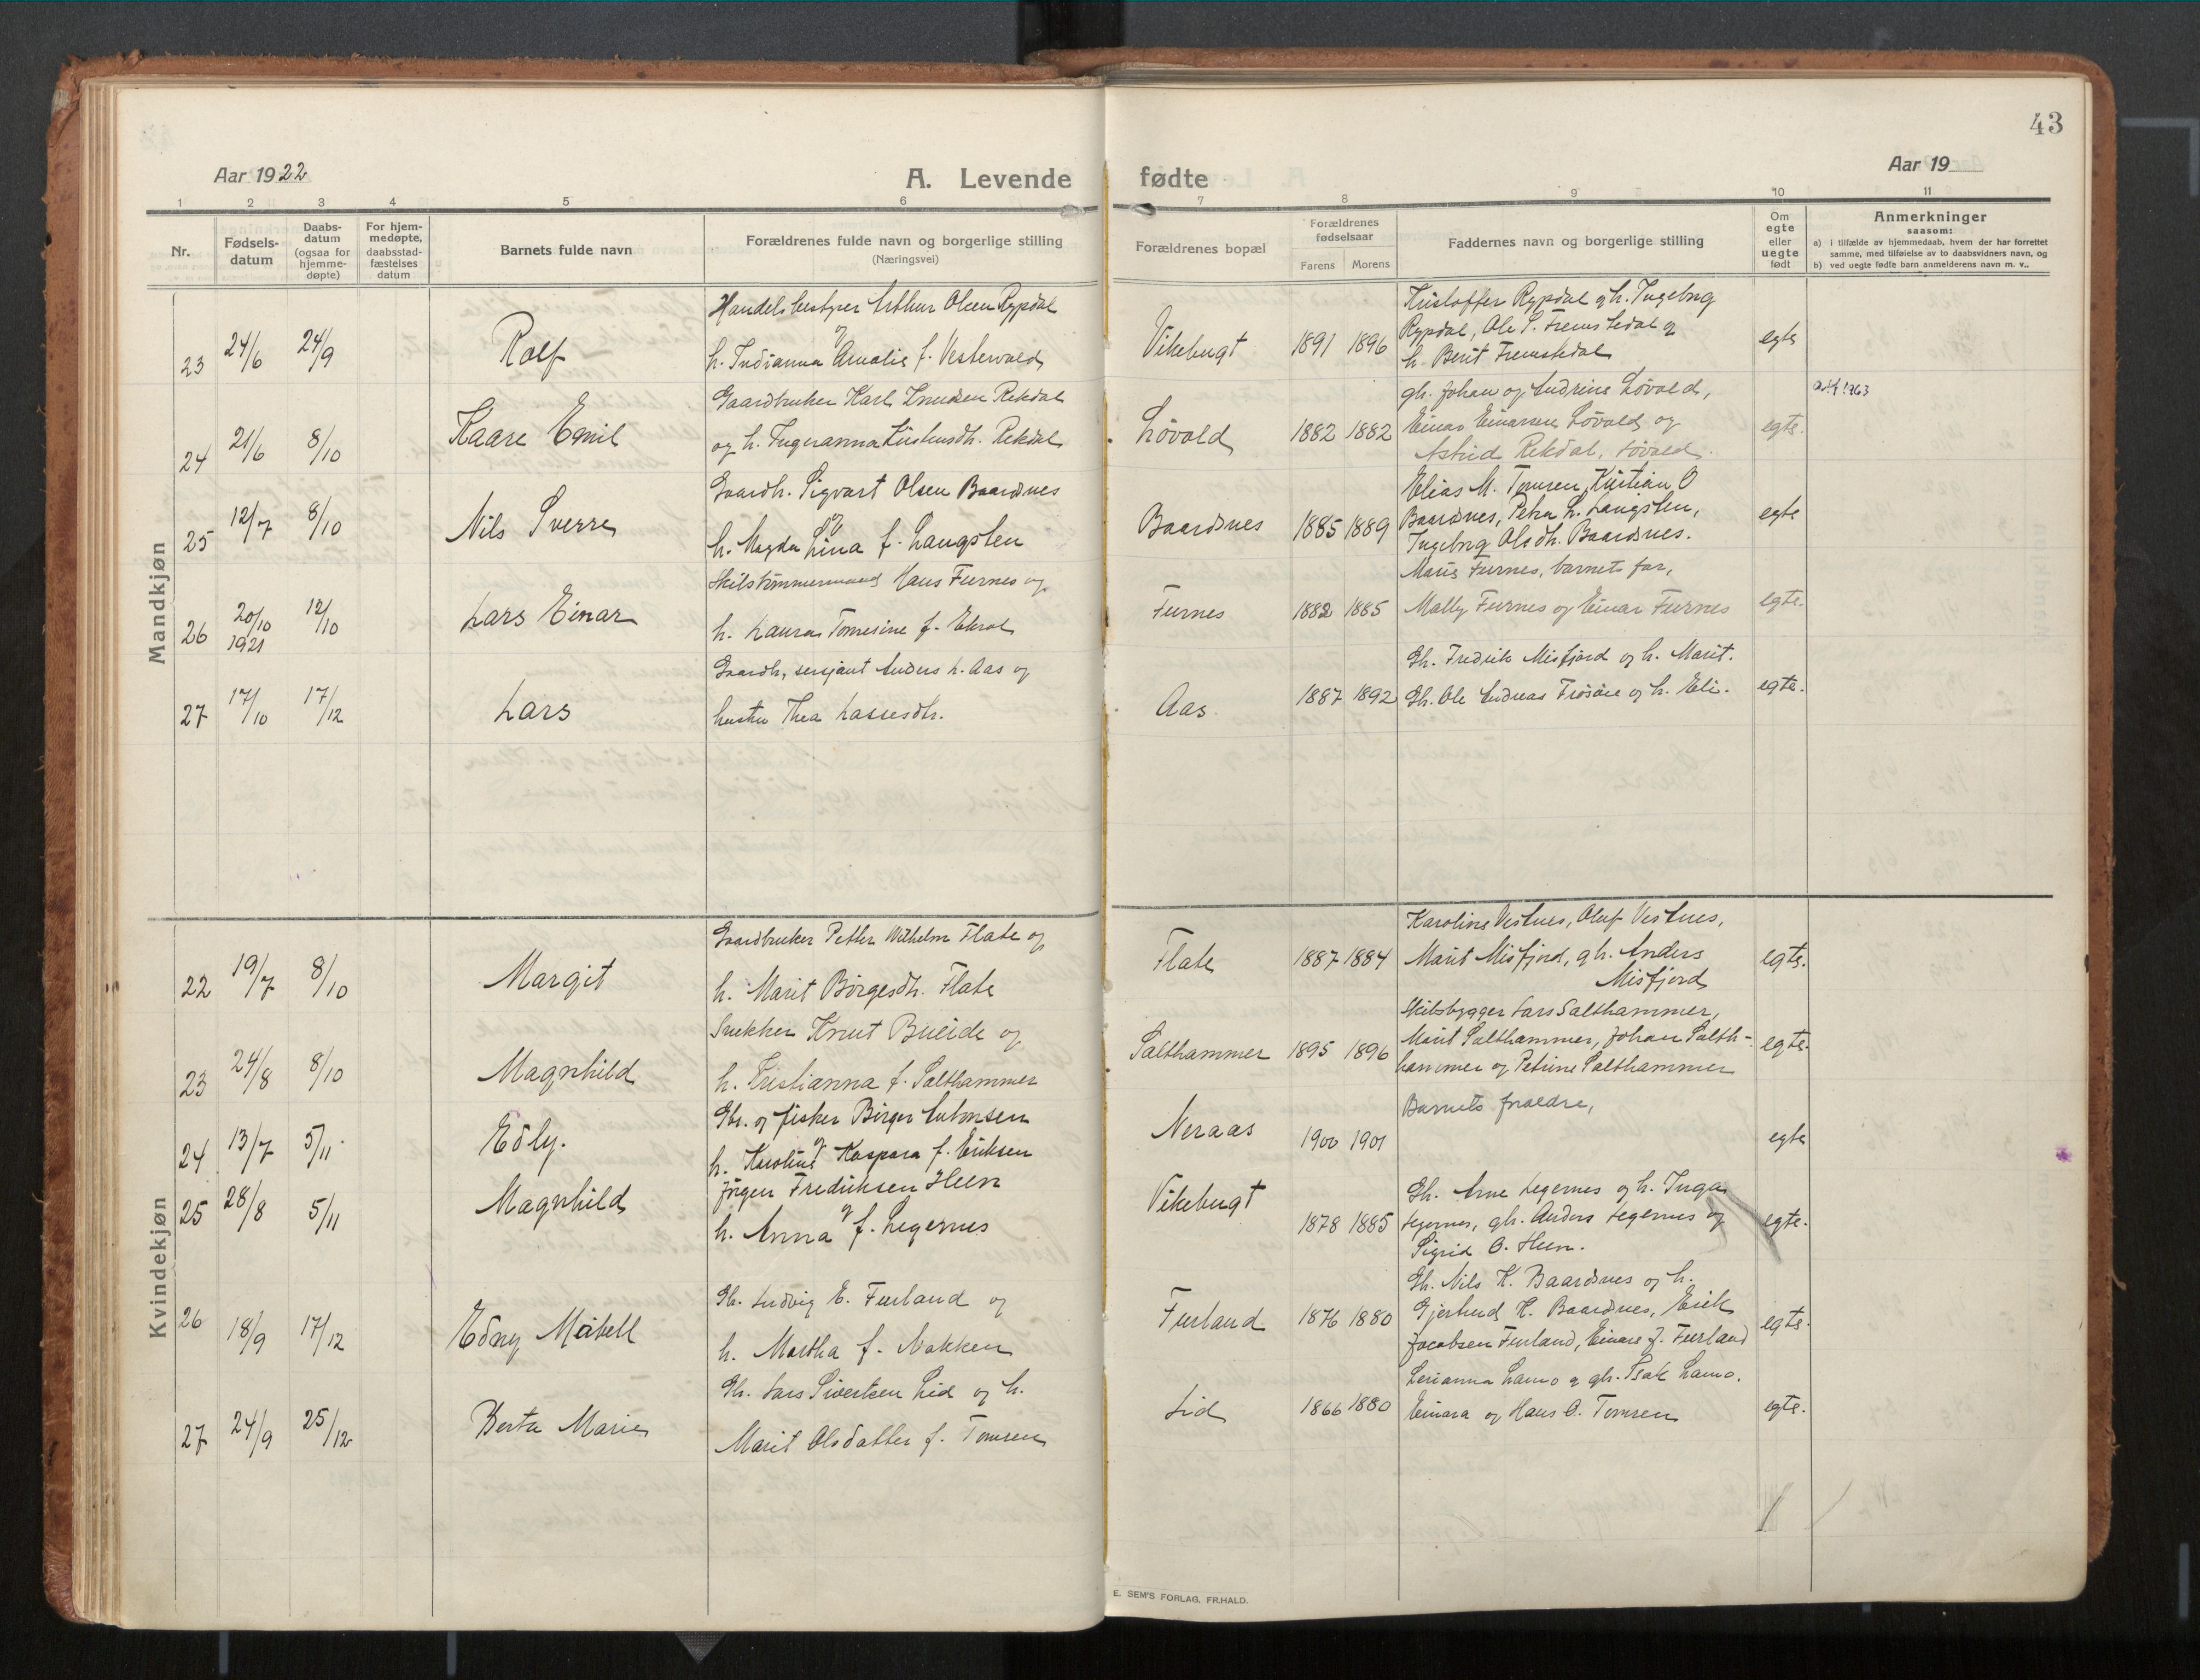 43
Aar 1922
A. Levende fødte
Aar 19
1 2 3 4 5 6 7 8 9 10 11
Nr.
Fødsels-
datum
Daabs-
datum
(ogsaa for
hjemme-
døpte)
For hjem-
medøpte,
daabsstad-
fæstelses
datum
Barnets fulde navn
Forældrenes fulde navn og borgerlige stilling
(Næringsvei)
Forældrenes bopæl
Forældrenes
fødselsaar
Farens Morens
Faddernes navn og borgerlige stilling
Om
egte
eller
uegte
født
Anmerkninger
saasom:
a) i tilfælde av hjemmedaab, hvem der har forrettet
samme, med tilføielse av to daabsvidners navn, og
b) ved uegte fødte barn anmelderens navn m. v..
Mandkjøn
23 24/6 24/9 Rolf
Handelsbestyrer Arthur Olsen Rypdal
og
h. Indianna Amalie f. Vestervold
Vikebugt 1891 1896
Kristoffer Rypdal gh. Ingebrg
Rypdal, Ole S. Fremstedal og
h. Berit Fremstedal
egte
24 21/6 8/10 Kaare Emil
Gaardbruker Karl Knudsen Rekdal
og h. Ingeranna Kristensdh. Rekdal
Løvold 1882 1882
gh. Johan og Andrine Løvold,
Einar Einarsen Løvold og
Astrid Rekdal, Løvold.
egte.
1963
25 12/7 8/10 Nils Sverre
Gaardb. Sigvart Olsen Baardsnes
og
h. Magda Lina f. Langsten
Baardsnes 1885 1889
Elias M. Tomren, Kristian O
Baardsnes, Petra L. Langsten,
Ingebrg Olsdh. Baardsnes.
egte
26 20/10 1921 12/10 Lars Einar
Skibstømmermand Hans Furnes og
h. Laura Tomesine f. Ekrol
Furnes 1882 1885
Marie Furnes, barnets far,
Mally Furnes og Einar Furnes
egte.
27 17/10 17/12 Lars
Gaardb, sersjant Anders L. Aas og
hustru Thea Lassesdtr.
Aas 1887 1892
Gb. Fredrik Misfjord og h. Marit.
Gb. Ole Andreas Frøsåe og h. Eli.
egte.
Kvindekjøn
22 19/7 8/10 Margit
Gaardbruker Petter Wilhelm Flate og
h. Marit Børgesdh. Flate
Flate 1887 1884
Karoline Vestnes, Oluf Vestnes,
Marit Misfjord, gh. Anders
Misfjord
egte.
23 24/8 8/10 Magnhild
Snekker Knut Bueide og
h. Kristianna f. Salthammer
Salthammer 1895 1896
Skibsbygger Lars Salthammer,
Marit Salthammer, Johan Salth-
hammer og Petrine Salthammer
egte.
24 13/7 5/11 Edly.
Gbr. og fisker Birger Antonsen
og
h. Karoline Kaspara f. Eriksen
Neraas 1900 1901
Barnets foraeldre,
egte
25 28/8 5/11 Magnhild
Jørgen Fredriksen Heen
og
h. Anna f. Legernes
Vikebugt 1878 1885
Gb. Arne Legernes og h. Inga
Legernes, gh. Anders Legernes og
Sigrid O. Heen.
egte.
26 18/9 17/12 Edny Maibell
Gb. Ludvig E. Furland og
h. Martha f. Nakken
Furland 1876 1880
Gb. Nils K. Baardsnes og h.
Gjertrud K. Baardsnes, Erik
Jacobsen Furland, Einare J. Furland
egte.
27 24/9 25/12 Berta Marie
Gb. Lars Sivertsen Lid og h.
Marit Olsdatter f. Tomren
Lid 1866 1880
Lerianna Lamo og gh. Isak Lamo.
Einara og Hans O. Tomren
egte.
E. SEM'S FORLAG, FR.HALD.